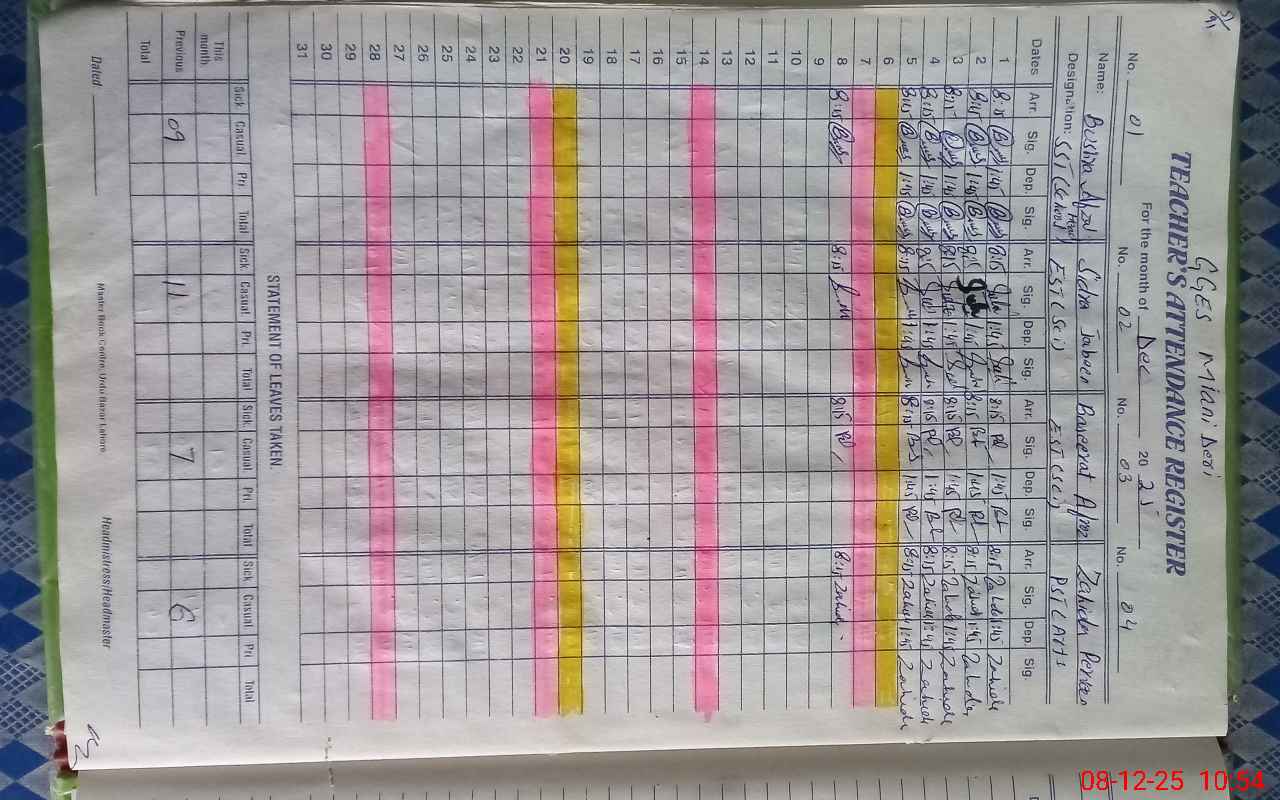 GGES Miani Deri
TEACHER'S ATTENDANCE REGISTER
For the month of Dec 2025
No. 01 No. 02 No. 03 No. 04
Name: Bushra Afzal Sidra Jabeen Baseerat Afroz Zahida Perveen
Designation: SST (School Head) EST (Sci) EST (Sci) PST (Arts)
Dates Arr. Sig. Dep. Sig. Arr. Sig. Dep. Sig. Arr. Sig. Dep. Sig. Arr. Sig. Dep. Sig.
1 8:15 1:45 8:15 1:45 8:15 1:45 8:15 Zahida 1:45 Zahida
2 8:15 1:45 8:15 1:45 8:15 1:45 8:15 Zahida 1:45 Zahida
3 8:15 1:45 8:15 1:45 8:15 1:45 8:15 Zahida 1:45 Zahida
4 8:15 1:45 8:15 1:45 8:15 1:45 8:15 Zahida 1:45 Zahida
5 8:15 1:45 8:15 1:45 8:15 1:45 8:15 Zahida 1:45 Zahida
6
7
8 8:15 8:15 8:15 8:15 Zahida
9
10
11
12
13
14
15
16
17
18
19
20
21
22
23
24
25
26
27
28
29
30
31
STATEMENT OF LEAVES TAKEN
Sick Casual Pri Total Sick Casual Pri Total Sick Casual Pri Total Sick Casual Pri Total
This month
Previous 09 11 7 6
Total
Dated Master Book Centre, Urdu Bazar Lahore Headmistress/Headmaster
08-12-25 10:54